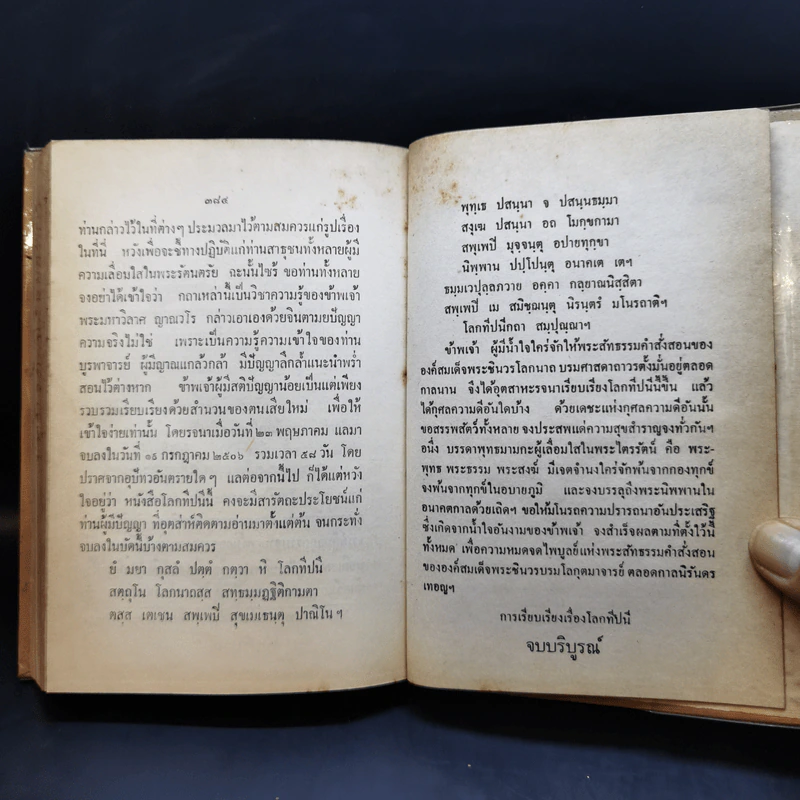 ๓๘๙
ท่านกล่าวไว้ในที่ต่างๆ ประมวลมาไว้ตามสมควรแก่รูปเรื่อง
ในที่นี่ หวังเพื่อจะชี้ทางปฏิบัติแก่ท่านสาธุชนทั้งหลายผู้มี
ความเลื่อมใสในพระรัตนตรัย ฉะนั้นไซร้ ขอท่านทั้งหลาย
จงอย่าได้เข้าใจว่า กถาเหล่านี้เป็นวิชาความรู้ของข้าพเจ้า
พระมหาวิลาศ ญาณวโร กล่าวเอาเองด้วยจินตามยปัญญา
ความจริงไม่ใช่ เพราะเป็นความรู้ความเข้าใจของท่าน
บูรพาจารย์ ผู้มีญาณแกล้วกล้า มีปัญญาลึกล้ำแนะนำพร่ำ
สอนไว้ต่างหาก ข้าพเจ้าผู้มีสติปัญญาน้อยเป็นแต่เพียง
รวบรวมเรียบเรียงด้วยสำนวนของตนเสียใหม่ เพื่อให้
เข้าใจง่ายเท่านั้น โดยรจนาเมื่อวันที่ ๒๓ พฤษภาคม แลมา
จบลงในวันที่ ๑๙ กรกฎาคม ๒๕๐๖ รวมเวลา ๕๘ วัน โดย
ปราศจากอุปัทวอันตรายใดๆ แต่ต่อจากนี้ไป ก็ได้แต่หวัง
ใจอยู่ว่า หนังสือโลกทีปนีนี้ คงจะมีสารัตถะประโยชน์แก่
ท่านผู้มีปัญญา ที่อุตส่าห์ติดตามอ่านมาตั้งแต่ต้น จนกระทั่ง
จบลงในบัดนี้บ้างตามสมควร
ยํ มยา กุสลํ ปตฺตํ กตฺวา หิ โลกทีปนี
สตฺถุโน โลกนาถสฺส สทฺธมฺมฏฺฐิติกามตา
ตสฺส เตเชน สพฺเพปิ สุขเมเธนฺตุ ปาณิโนฯ
พุทฺเธ ปสนฺนา จ ปสนฺนธมฺมา
สงฺเฆ ปสนฺนา อถ โมกฺขกามา
สพฺเพปิ มุจฺจนฺตุ อปายทุกฺขา
นิพฺพาน ปปฺโปนฺตุ อนาคเต เตฯ
ธมฺมเวปุลฺลภวาย อคฺคา กลฺยาณนิสฺสิตา
สพฺเพปิ เม สมิชฺฌนฺตุ นิรนฺตรํ มโนรถาติฯ
โลกทีปนีกถา สมฺปุณฺณาฯ
ข้าพเจ้า ผู้มีน้ำใจใคร่จักให้พระสัทธรรมคำสั่งสอนของ
องค์สมเด็จพระชินวรโลกนาถ บรมศาสดาถาวรตั้งมั่นอยู่ตลอด
กาลนาน จึงได้อุตสาหะรจนาเรียบเรียงโลกทีปนีนี้ขึ้น แล้ว
ได้กุศลความดีอันใดบ้าง ด้วยเดชะแห่งกุศลความดีอันนั้น
ขอสรรพสัตว์ทั้งหลาย จงประสพแต่ความสุขสำราญจงทั่วกันฯ
อนึ่ง บรรดาพุทธมามกะผู้เลื่อมใสในพระไตรรัตน์ คือ พระ-
พุทธ พระธรรม พระสงฆ์ มีเจตจำนงใคร่จักพ้นจากกองทุกข์
จงพ้นจากทุกข์ในอบายภูมิ และจงบรรลุถึงพระนิพพานใน
อนาคตกาลด้วยเถิดฯ ขอให้มโนรถความปรารถนาอันประเสริฐ
ซึ่งเกิดจากน้ำใจอันงามของข้าพเจ้า จงสำเร็จผลตามที่ตั้งไว้นี้
ทั้งหมด เพื่อความหมดจดไพบูลย์แห่งพระสัทธรรมคำสั่งสอน
ขององค์สมเด็จพระชินวรบรมโลกุตมาจารย์ ตลอดกาลนิรันดร
เทอญฯ
การเรียบเรียงเรื่องโลกทีปนี
จบบริบูรณ์